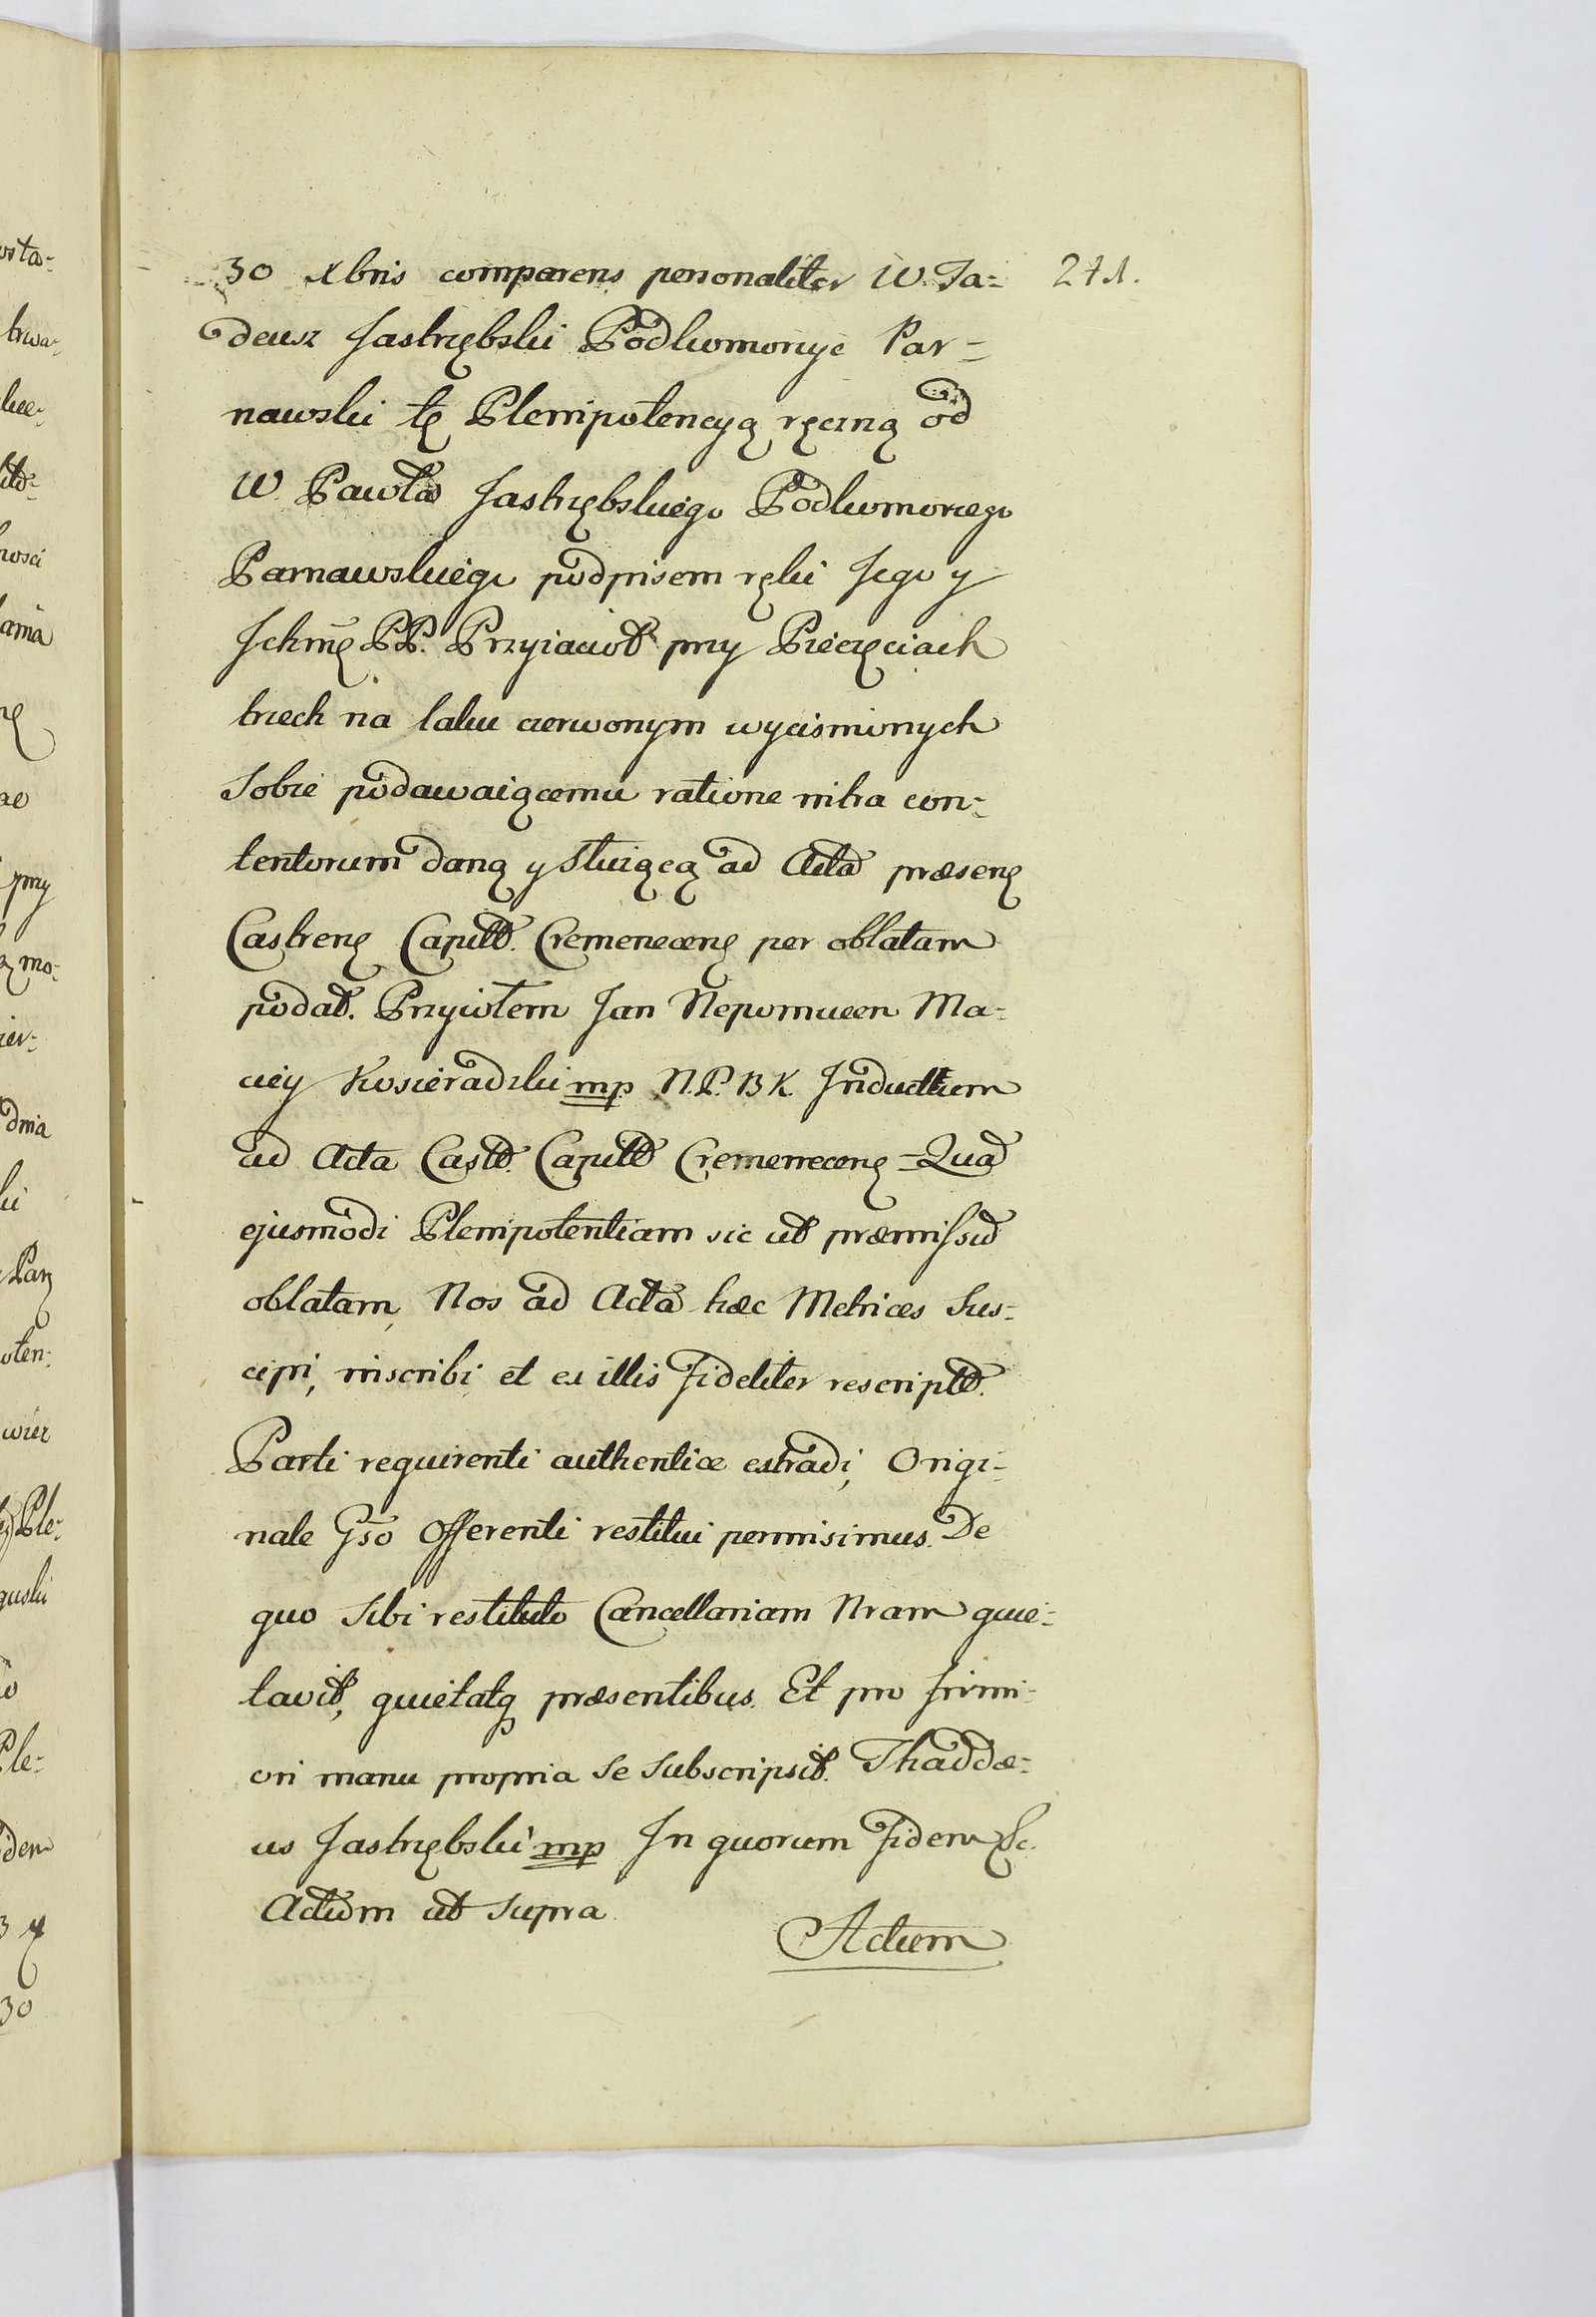 30 Xbris comparens personaliter W. Ta= 271.
deusz Jastrzębski Podkomorzyc Par=
nawski tę Plenipotencyą ręczną od
W Pawła Jastrzębskiego Podkomorzego
Parnawskiego podpisem ręki Jego y
Ichmę PP. Przyiacioł przy Pieczęciach
trzech na laku czerwonym wycisnionych
Sobie podawaiącemu ratione intra con=
tentorum daną y Służącą ad Acta præsenę
Castrenę Capitt. Cremenecenę per oblatam
podał. Przyiołem Jan Nepomucen Ma=
ciey Kosieradzki mp N.P.B K. Inductum
ad Acta Castt. Capitt Cremenecenę = Quã
ejusmodi Plenipotentiam sic ut præmissũ
oblatam, Nos ad Acta hæc Metrices Sus=
cipi, inscribi et ex illis fideliter rescriptt.
Parti requirenti authentice extradi, Origi=
nale Gso Offerenti restitui permisimus. De
quo Sibi restituto Cancellariam Nram quie=
tavit, quietatq præsentibus. Et pro firmi=
ori manu propria Se Subscripsit. Thaddæ=
us Jastrzębski mp In quorum fidem &c.
Actum ut Supra
Actum